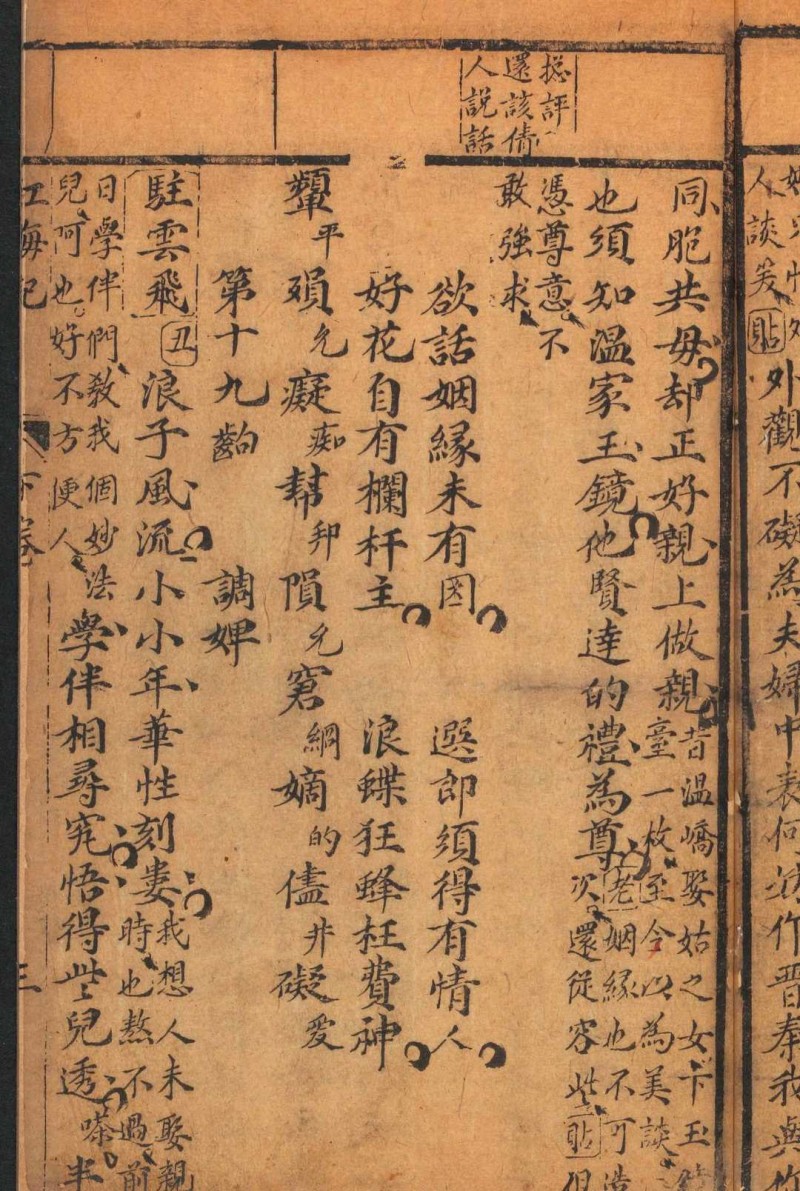 人談笑貼外觀不礙為夫婦中表何妨作晉秦我與你
揔評
還該倩
人說話
同胞共母却正好親上做親昔温嶠娶姑之女下玉鏡
臺一枚至今以為美談
也須知温家玉鏡他賢達的禮為尊老姻緣也不可造
次還從容些貼但
憑尊意不
敢強求
欲話姻緣未有因 選郎須得有情人
好花自有欄杆主 浪蝶狂蜂枉費神
顰平 殞允 癡痴 幇邦 隕允 窘綱 嫡的 儘井 礙爱
第十九齣 調婢
駐雲飛丑浪子風流小小年華性刻婁我想人未娶親
時也熬不過前
日學伴們教我個妙法
兒可也好不方便人
學伴相尋究悟得些兒透嗏半
江海記 下卷 三